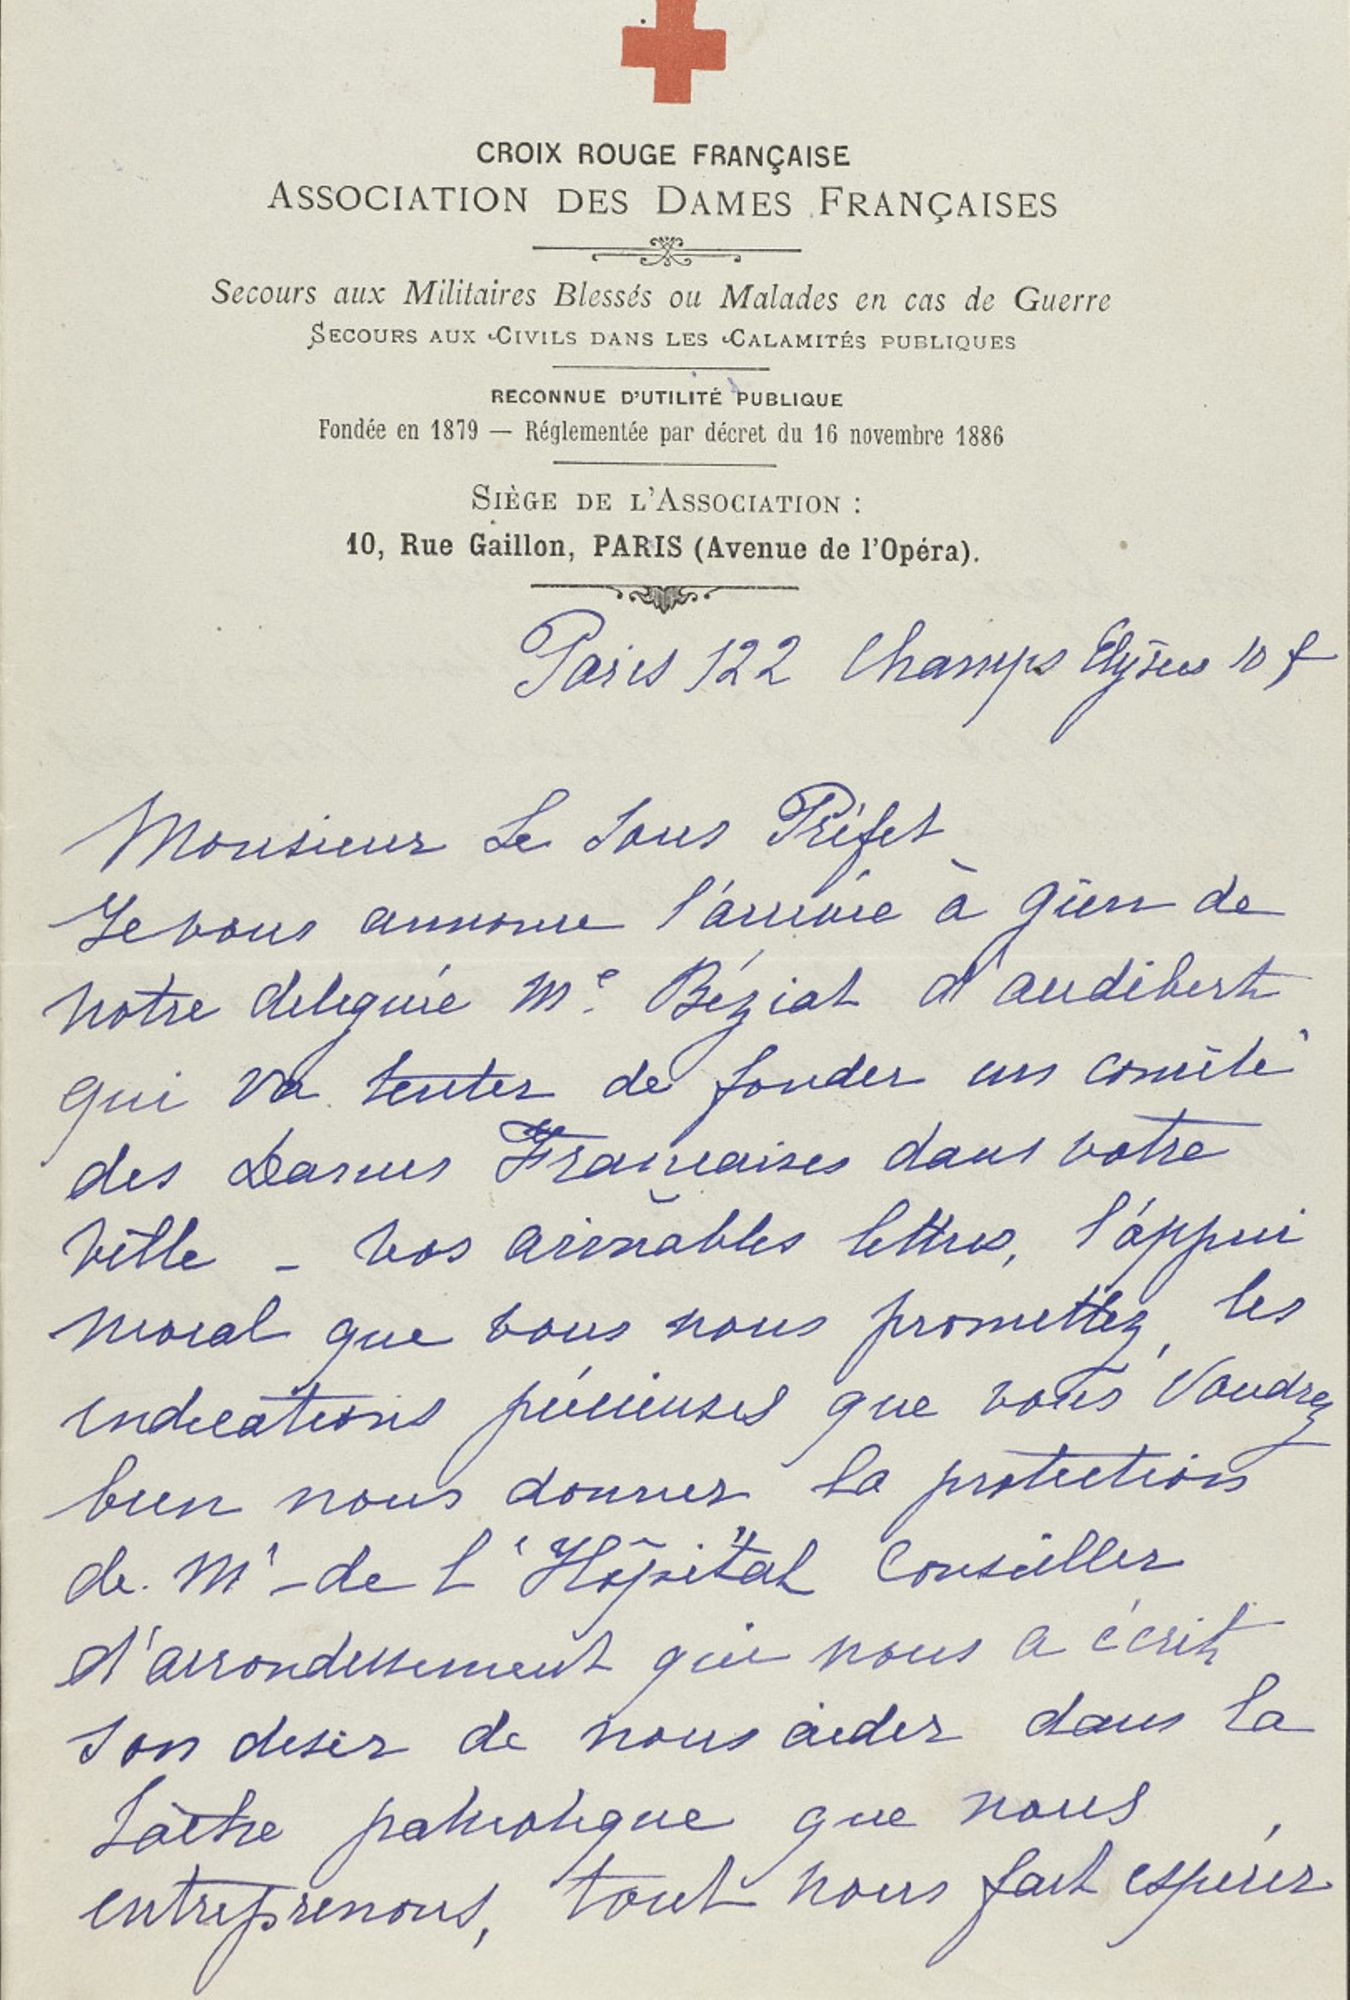 CROIX ROUGE FRANÇAISE
ASSOCIATION DES DAMES FRANÇAISES
Secours aux Militaires Blessés ou Malades en cas de Guerre
SECOURS AUX CIVILS DANS LES CALAMITÉS PUBLIQUES
RECONNUE D'UTILITÉ PUBLIQUE
Fondée en 1879 — Réglementée par décret du 16 novembre 1886
SIÈGE DE L'ASSOCIATION :
10, Rue Gaillon, PARIS (Avenue de l'Opéra).
Paris 122 Champs Elysées 10 f
Monsieur Le Sous Préfet
Je vous annonce l'arrivée à Gien de
notre déléguée Me. Béziat d'audibert
qui va tenter de fonder un comité
des Dames Françaises dans votre
ville - vos aimables lettres, l'appui
moral que vous nous promettez, les
indications précieuses que vous voudrez
bien nous donner la protection
de Mr de l'Hôpital Conseiller
d'arrondissement qui nous a écrit
son desir de nous aider dans la
tâche patriotique que nous
entreprenons, tout nous fait espérer